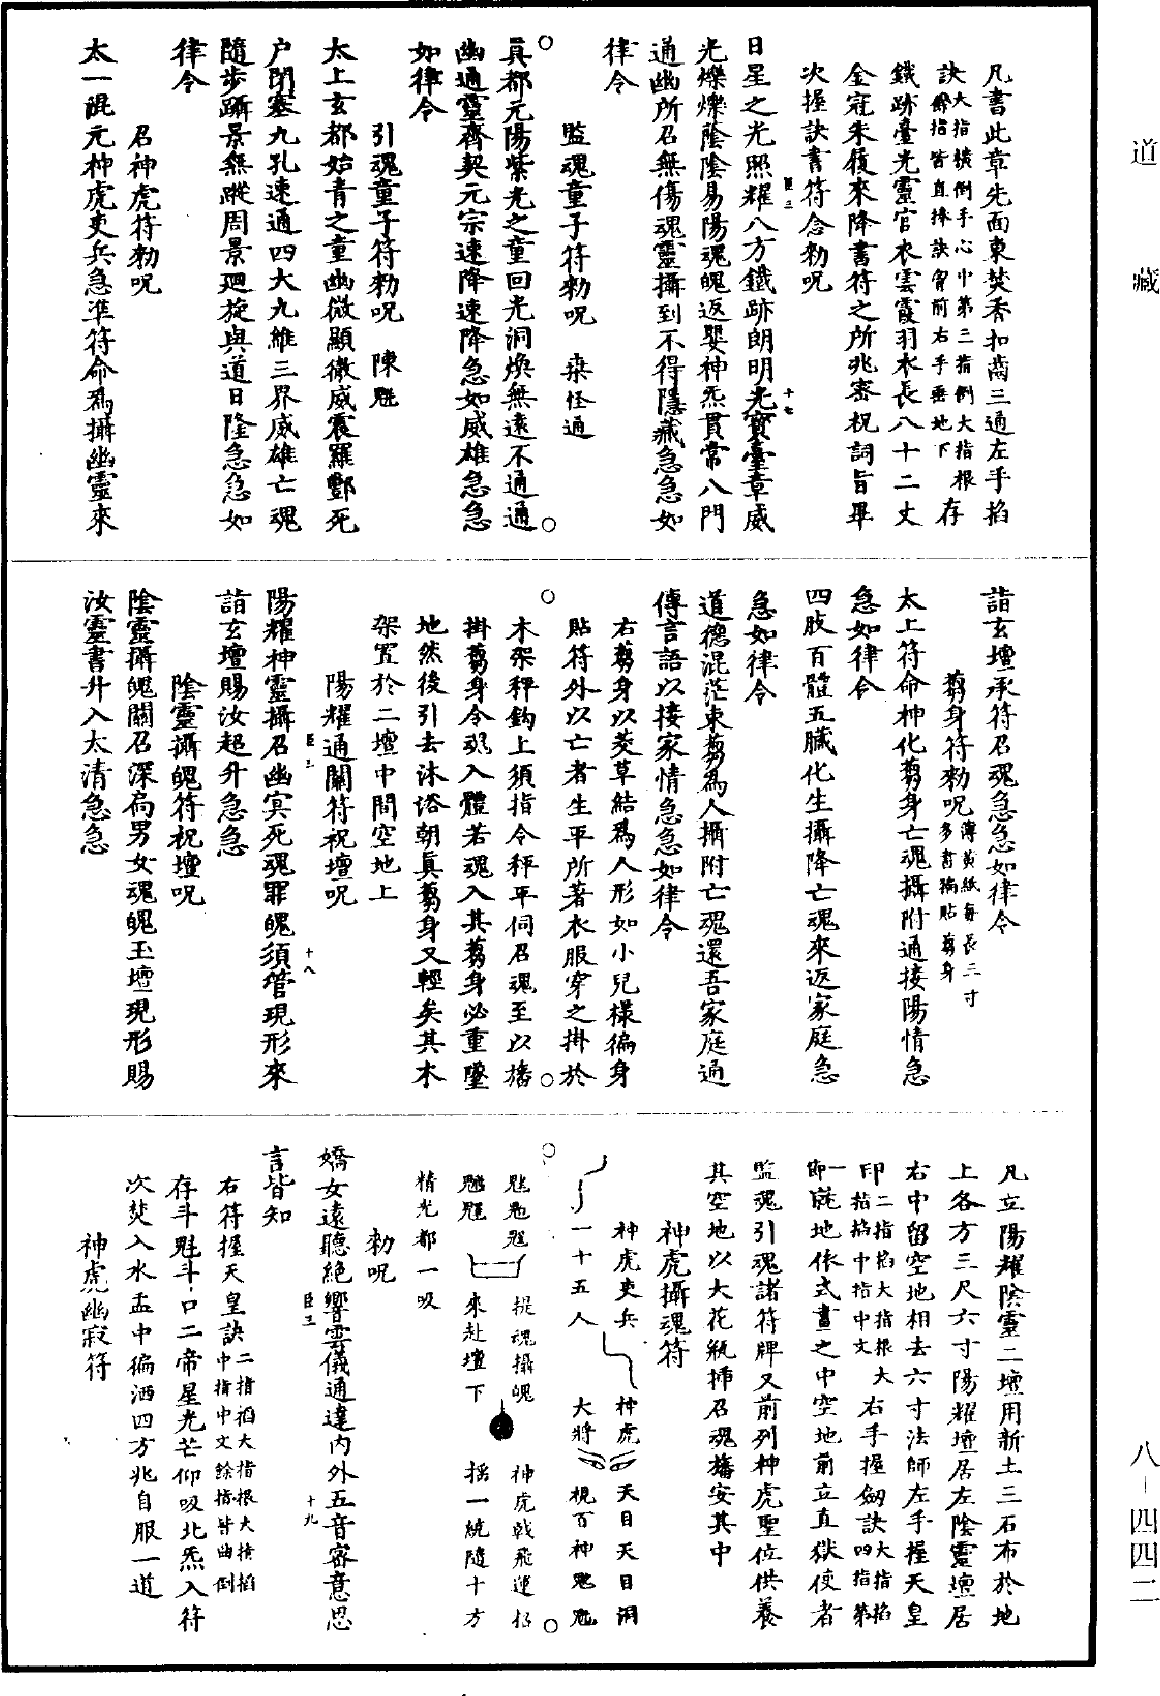 道藏
八-四四二
凡書此章先面東焚香扣齒三通左手掐
訣大指横倒手心中第二指倒大指根
餘指皆直捧訣當前右手垂地下存
鐵跡臺光靈官衣雲霞羽衣長八十二丈
金冠朱履來降書符之所兆密祝詞旨畢
次握訣書符念勑呪
臣三 十七
日星之光照耀八方鐵跡朗明光寶臺章威
光爍爍蔭陰易陽魂魄返嬰神炁貫常八門
通幽所召無傷魂靈攝到不得隱藏急急如
律令
監魂童子符勑呪 桒怪通
真都元陽紫光之童回光洞煥無遠不通通
幽通靈齊契元宗速降速降急如威雄急急
如律令
引魂童子符勑呪 陳
太上玄都始青之童幽微顯徹威震羅酆死
户閉塞九孔速通四大九維三界威雄亡魂
隨步躡景無蹤周景廻旋與道日隆急急如
律令
召神虎符勑呪
太一混元神虎吏兵急准符命爲攝幽靈來
詣玄壇承符召魂急急如律令
蒭身符勑呪薄黄紙每長三寸
多書徧貼蒭身
太上符命神化蒭身亡魂攝附通接陽情急
急如律令
四肢百體五臟化生攝降亡魂來返家庭急
急如律令
道德混茫束蒭為人攝附亡魂還吾家庭通
傳言語以接家情急急如律令
右蒭身以茭草結爲人形如小兒樣徧身
貼符外以亡者生平所著衣服穿之掛於
木架秤鈎上須指令秤平伺召魂至以旛
掛蒭身令魂入體若魂入其蒭身必重墜
地然後引去沐浴朝真蒭身又輕矣其木
架置於二壇中間空地上
陽耀通關符祝壇呪
臣三 十八
陽耀神靈攝召幽冥死魂罪魄須管現形來
詣玄壇賜汝超升急急
陰靈攝魄符祝壇呪
陰靈攝魄關召深扃男女魂魄玉壇現形賜
汝靈書升入太清急急
凡立陽耀陰靈二壇用新土三石布於地
上各方三尺六寸陽耀壇居左陰靈壇居
右中留空地相去六寸法師左手握天皇
印二指掐大指根大
指掐中指中文右手握劒訣大指掐
四指第
一節就地依式畫之中空地前立直獄使者
監魂引魂諸符牌又前列神虎聖位供養
其空地以大花瓶揷召魂旛安其中
神虎攝魂符
神虎吏兵
一十五人
神虎
大將
天目天目洞
視百神
提魂攝魄
來赴壇下
神虎戟飛運
揺一統隨十方
精光都一吸
勑呪
臣三 十九
嬌女遠聽絶響雲儀通達内外五音審意思
言皆知
右符握天皇訣二指掐大指根大指掐
中指中文餘指皆曲倒
存斗魁斗口二帝星光芒仰吸北炁入符
次焚入水盂中徧洒四方兆自服一道
神虎幽寂符